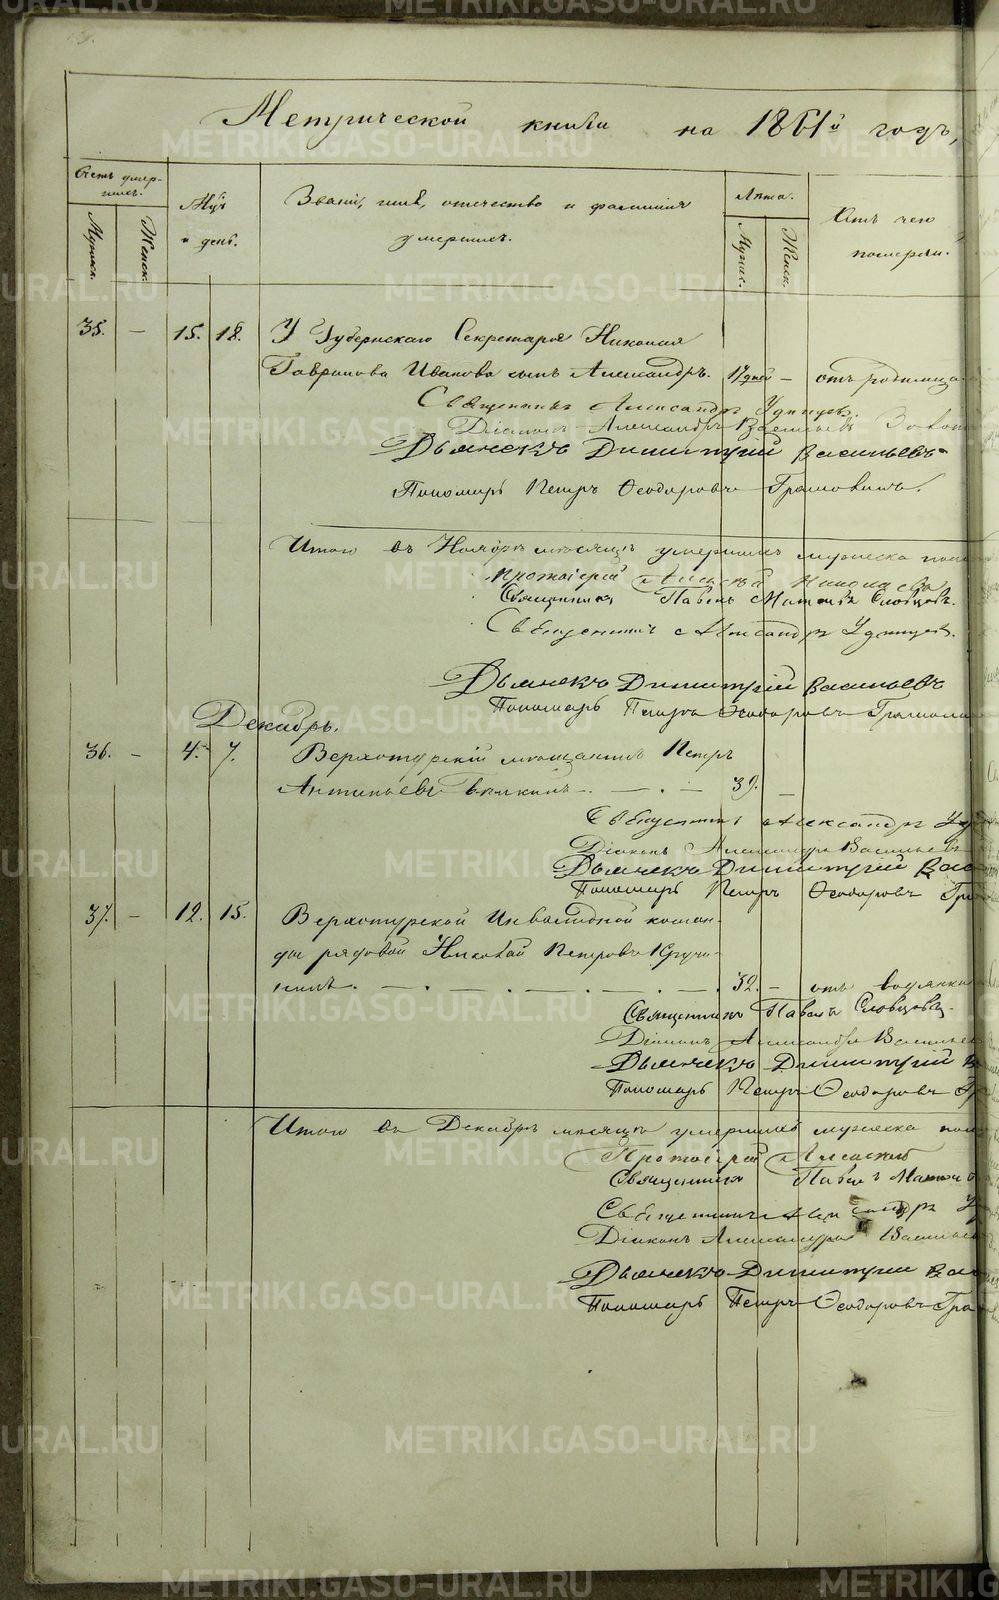 Метрической книги на 1861й годъ,
Счетъ умер-
шихъ.
Мужск.
Женск.
Мѣс.
и день.
Званіе, имя, отчество и фамилія
умершихъ.
Лѣта.
Мужск.
Женск.
Отъ чего
померли.
35. — 15. 18. У Губернскаго Секретаря Николая
Гаврилова Иванова сынъ Александръ. 17 дней — отъ родимца
Священникъ Александръ Удинцевъ.
Діаконъ Александръ Васильевъ
Дьячекъ Димитрій Васильевъ
Пономарь Петръ Ѳеодоровъ
Итого въ Ноябрѣ мѣсяцѣ умершихъ мужеска пола
Протоіерей Алексѣй Николаевъ
Священникъ Павелъ Матвѣевъ Словцовъ.
Священникъ Александръ Удинцев.
Дьячекъ Димитрій Васильевъ
Пономарь Петръ Ѳеодоровъ
Декабрь.
36. — 4. 7. Верхотурскій мѣщанинъ Петръ
Антипьевъ — . — 39. —
Священникъ Александръ Уд
Діаконъ Александръ Васильевъ
Дьячекъ Димитрій Вас
Пономарь Петръ Ѳеодоровъ Гра
37. — 12. 15. Верхотурской Инвалидной коман-
ды рядовой Николай Петровъ Кручи-
нинъ. — . — . — . — . — . 32. — отъ водянки
Священникъ Павелъ Словцовъ.
Діаконъ Александръ Васильев
Дьячекъ Димитрій В
Пономарь Петръ Ѳеодоровъ Гр
Итого въ Декабрѣ мѣсяцѣ умершихъ мужеска пол
Протоіерей Алексѣй
Священникъ Павелъ Матвѣ
Священникъ Александръ У
Діаконъ Александръ Василье
Дьячекъ Димитрій Вас
Пономарь Петръ Ѳеодоровъ Гра
METRIKI.GASO-URAL.RU